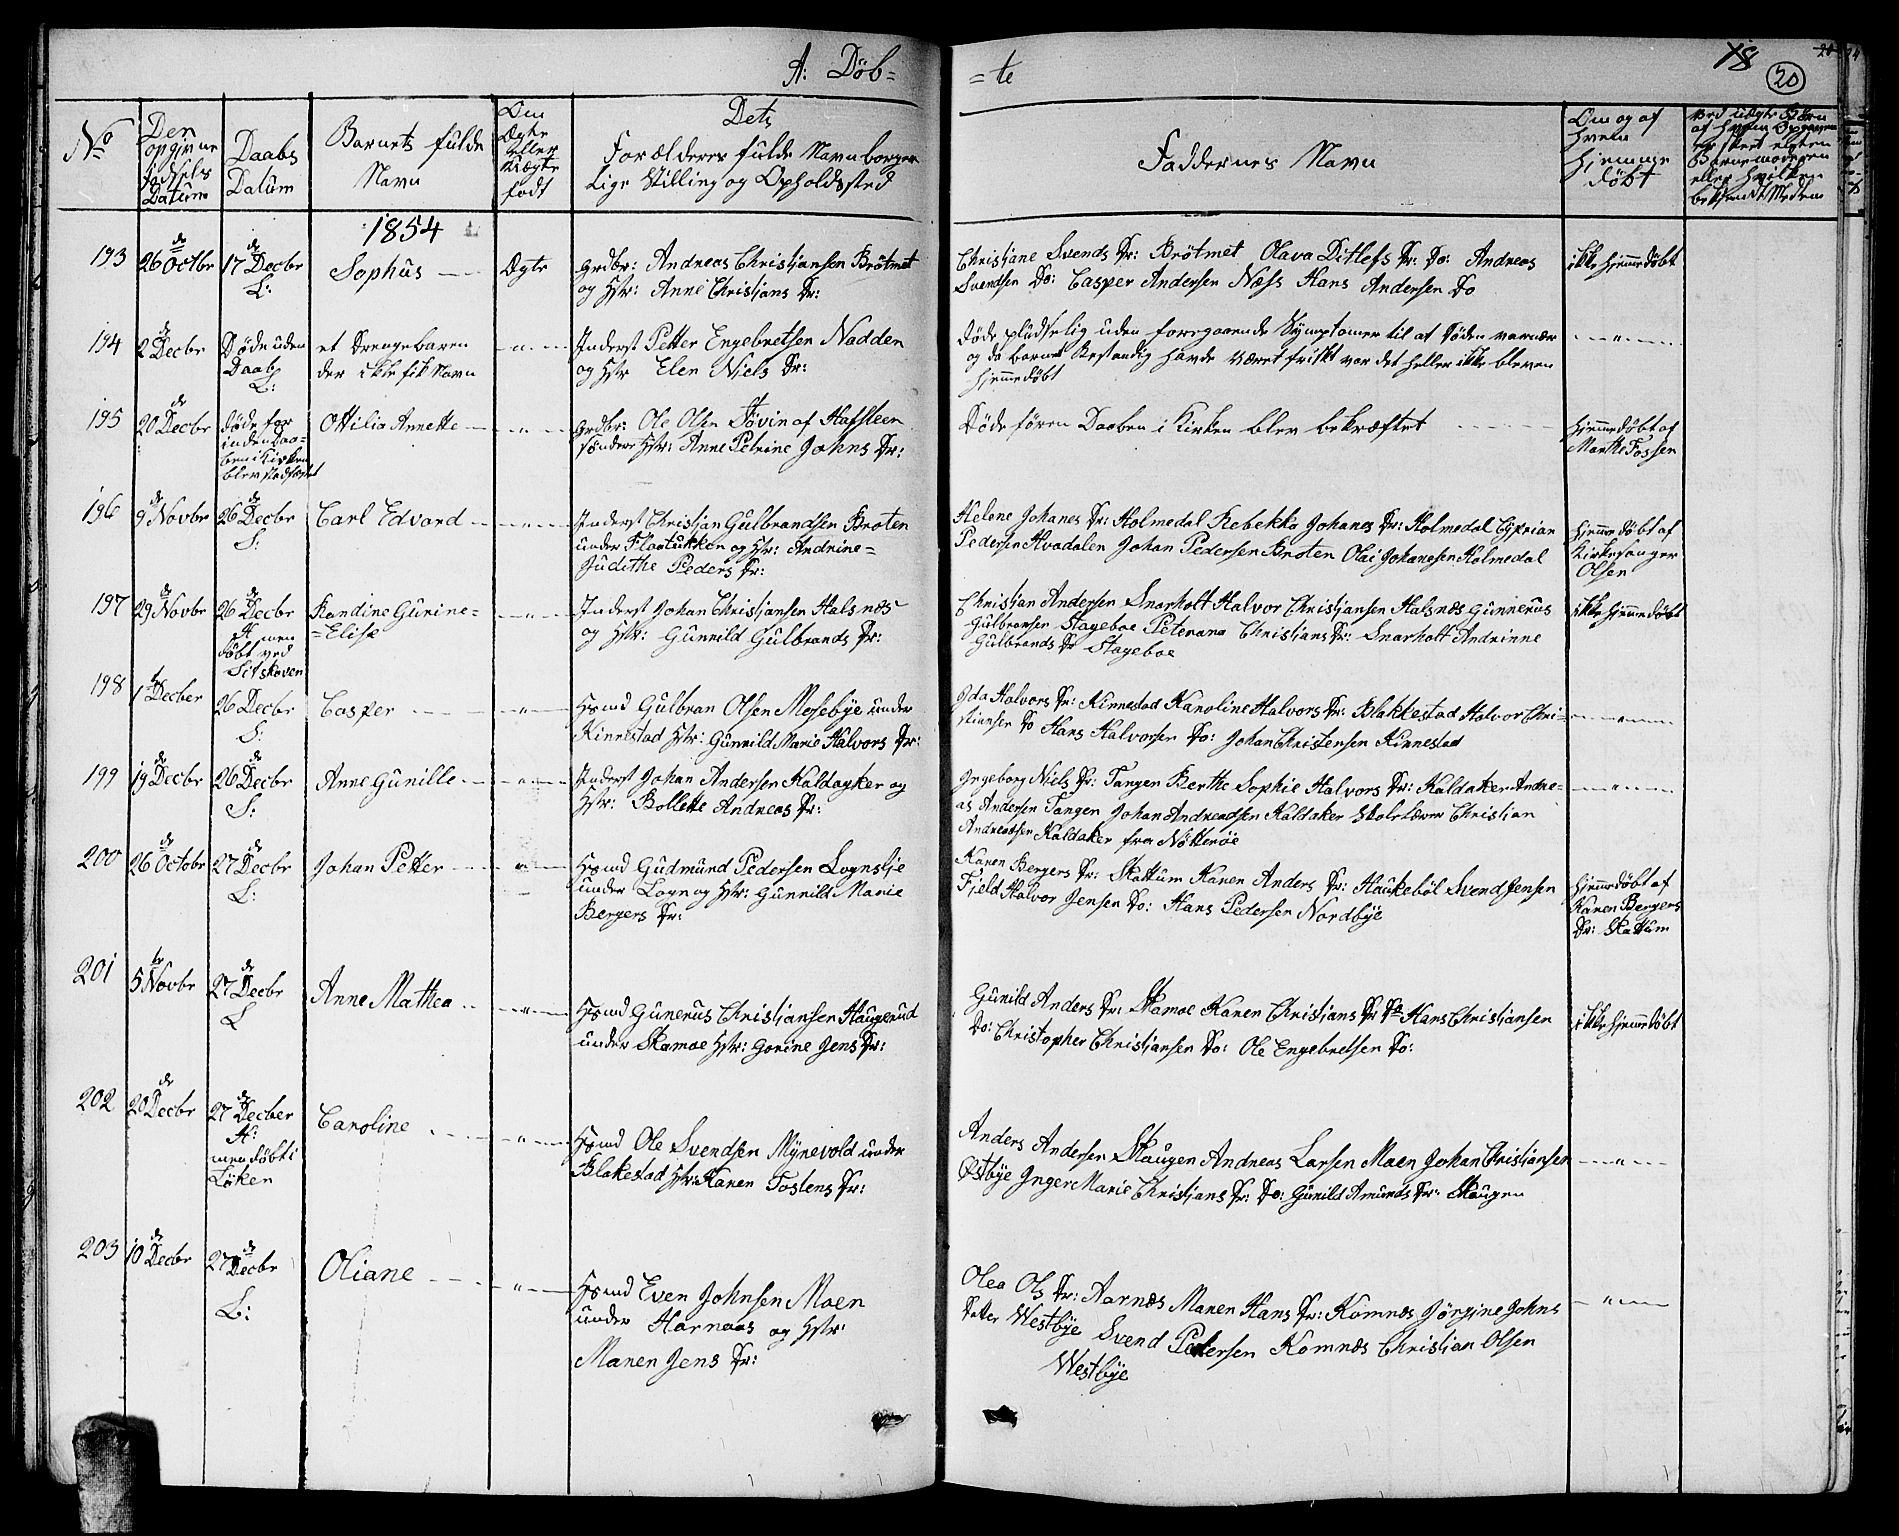 A: Döb=
=te
18
20
No
Den opgivne Fødsels Datum
Daabs Datum
Barnets fulde Navn
Om Ægte eller Uægte født
Dets Forælderes fulde Navn borger-
lige Stilling og Opholdssted
Faddernes Navn
Om og af hvem Hjemme döbt
1854
193 26de Octbr 17de Decbr L: Sophus Ægte
Grdbr: Andreas Christjansen Brötmet
og Hstr: Anne Christjans Dr:
Christjane Svends Dr: Brötmet Olava Ditlefs Dr: Do: Andreas
Svendsen Do: Casper Andersen Næss Hans Andersen Do
ikke hjemmedöbt
194 2de Decbr Døde uden Daab L:
et Drengebaren
der ikke fik Navn
- " -
Inderst Petter Engebretsen Nadden
og Hstr Elen Niels Dr:
Døde pludselig uden foregaaende Symptomer til at Døden var nær
og da barnet bestandig havde været friskt var det heller ikke bleven
hjemmedöbt
- " -
195 20de Decbr
døde før
inden Daa-
ben i Kirken
blev stadfæstet
Ottilia Annette - " -
Grdbr: Ole Olsen Tövin af Hafsteen
söndere Hstr: Anne Petrine Johns Dr:
Døde føren Daaben i Kirken blev bekræftet
hjemmedöbt af
Marthe Fossen
196 9de Novbr 26de Decbr S: Carl Edvard - " -
Inderst Christjan Gulbrandsen Broten
under Flaatukken og Hstr: Andrine=
Judithe Peders Dr:
Helene Johanes Dr: Holmedal Rebekka Johanes Dr: Holmedal Cyprian
Pedersen Hvadalen Johan Pedersen Broten Olai Johanesen Holmedal
hjemmedöbt af
Kirkesanger
Olsen
197 29de Novbr 26de Decbr
H: men
döbt ved
Sitskoven
Randine Gurine=
=Elise
- " -
Inderst Johan Christjansen Halsnæs
og Hstr: Gunnild Gulbrands Dr:
Christjan Andersen Snarholt Halvor Christjansen Halsnæs Gunnerus
Gulbransen Stageboe Peternana Christjans Dr: Snarholt Andrinne
Gulbrands Dr Stageboe
ikke hjemmedöbt
198 1te Decber 26 Decbr S: Casper - " -
Hsmd Gulbran Olsen Mosebye under
Kinnestad Hstr: Gunnild Marie Halvors Dr:
Ida Halvors Dr: Kinnestad Karoline Halvors Dr: Blakkestad Halvor Chri-
stiansen Do Hans Halvorsen Do: Johan Christensen Kinnestad
- " -
199 19de Decbr 26de Decbr S: Anne Gunille - " -
Inderst Johan Andersen Kaldaaker og
Hstr: Bollette Andreas Dr:
Ingeborg Niels Dr: Tangen Berthe Sophie Halvors Dr: Kaldaker Andre-
as Andersen Tangen Johan Andreadsen Kaldaker Skolelærer Christjan
Andreadsen Kaldaker fra Nötteröe
- " -
200 26de Octobr 27de Decbr L: Johan Petter - " -
Hsmd Gudmund Pedersen Lognslje
under Logn og Hstr: Gunnild Marie
Bergers Dr:
Karen Bergers Dr: Skattum Karen Anders Dr: Haukeböl Svend Jensen
Field Halvor Jensen Do: Hans Pedersen Nordbye
hjemmedöbt af
Karen Bergers
Dr: Skattum
201 5te Novbr 27de Decbr L Anne Mathea - " -
Hsmd Gunerus Christjansen Haugerud
under Skamoe Hstr: Gorine Jens Dr:
Gunild Anders Dr: Skamoe Karen Christjans Dr Do Hans Christjansen
Do: Christopher Christjansen Do: Ole Engebretsen Do:
ikke hjemmedöbt
202 20de Decbr 27de Decber
H:
men döbt i
Löken
Caroline - " -
Hsmd Ole Svendsen Mynevold under
Blakestad Hstr: Karen Tostens Dr:
Anders Andersen Skaugen Andreas Larsen Moen Johan Christjansen
Østbye Inger Marie Christjans Dr: Do: Gunild Amunds Dr: Skaugen
- " -
203 10de Decbr 27de Decbr L: Oliane - " -
Hsmd Even Johnsen Moen
under Harnaas og Hstr:
Maren Jens Dr:
Olea Ols Dr: Aarnæs Maren Hans Dr: Komnæs Jörgine Johns
Datter Westbye Svend Pedersen Komnæs Christjan Olsen
Westbye
- " -